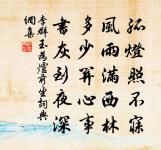 孤燈照不寐
風雨滿西林
多少關心事
書灰到夜深
李群玉為爐前坐詞典
網集